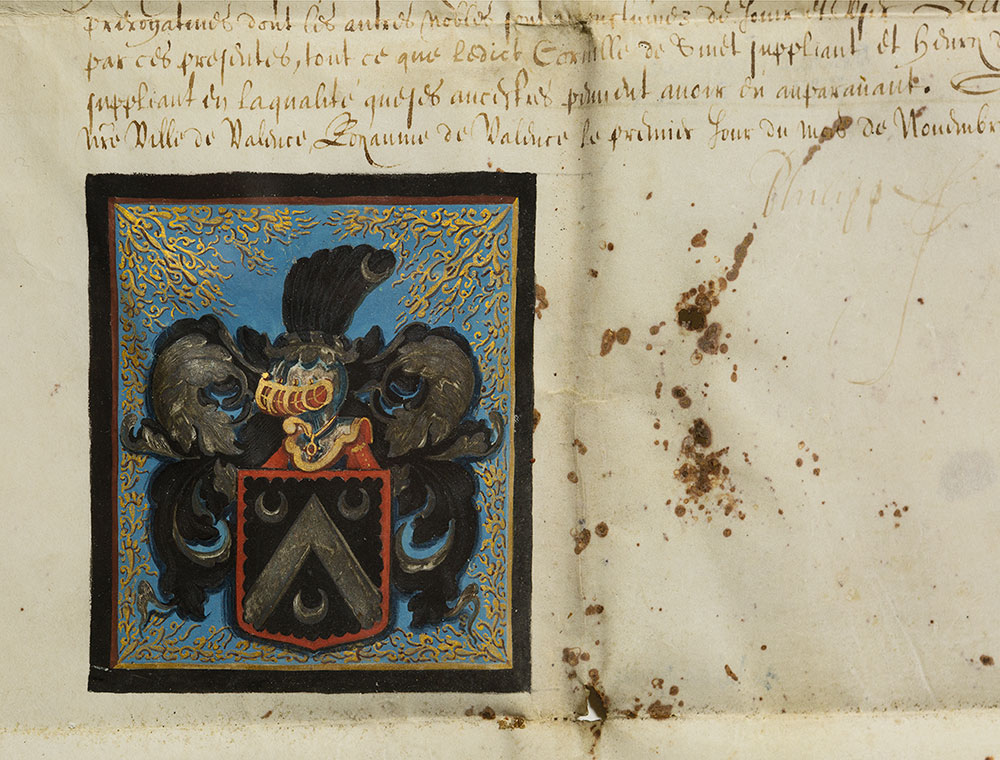 prerogatives dont les autres nobles sont de Jour
par ces presentes, tout ce que ledict Cornille de Smet suppliant et Henry
suppliant en laqualité queses ancestres peuvent avoir en auparavant.
nre Ville de Valence, Royaume de Valence le premier Jour du mois de Novembre
Philipp